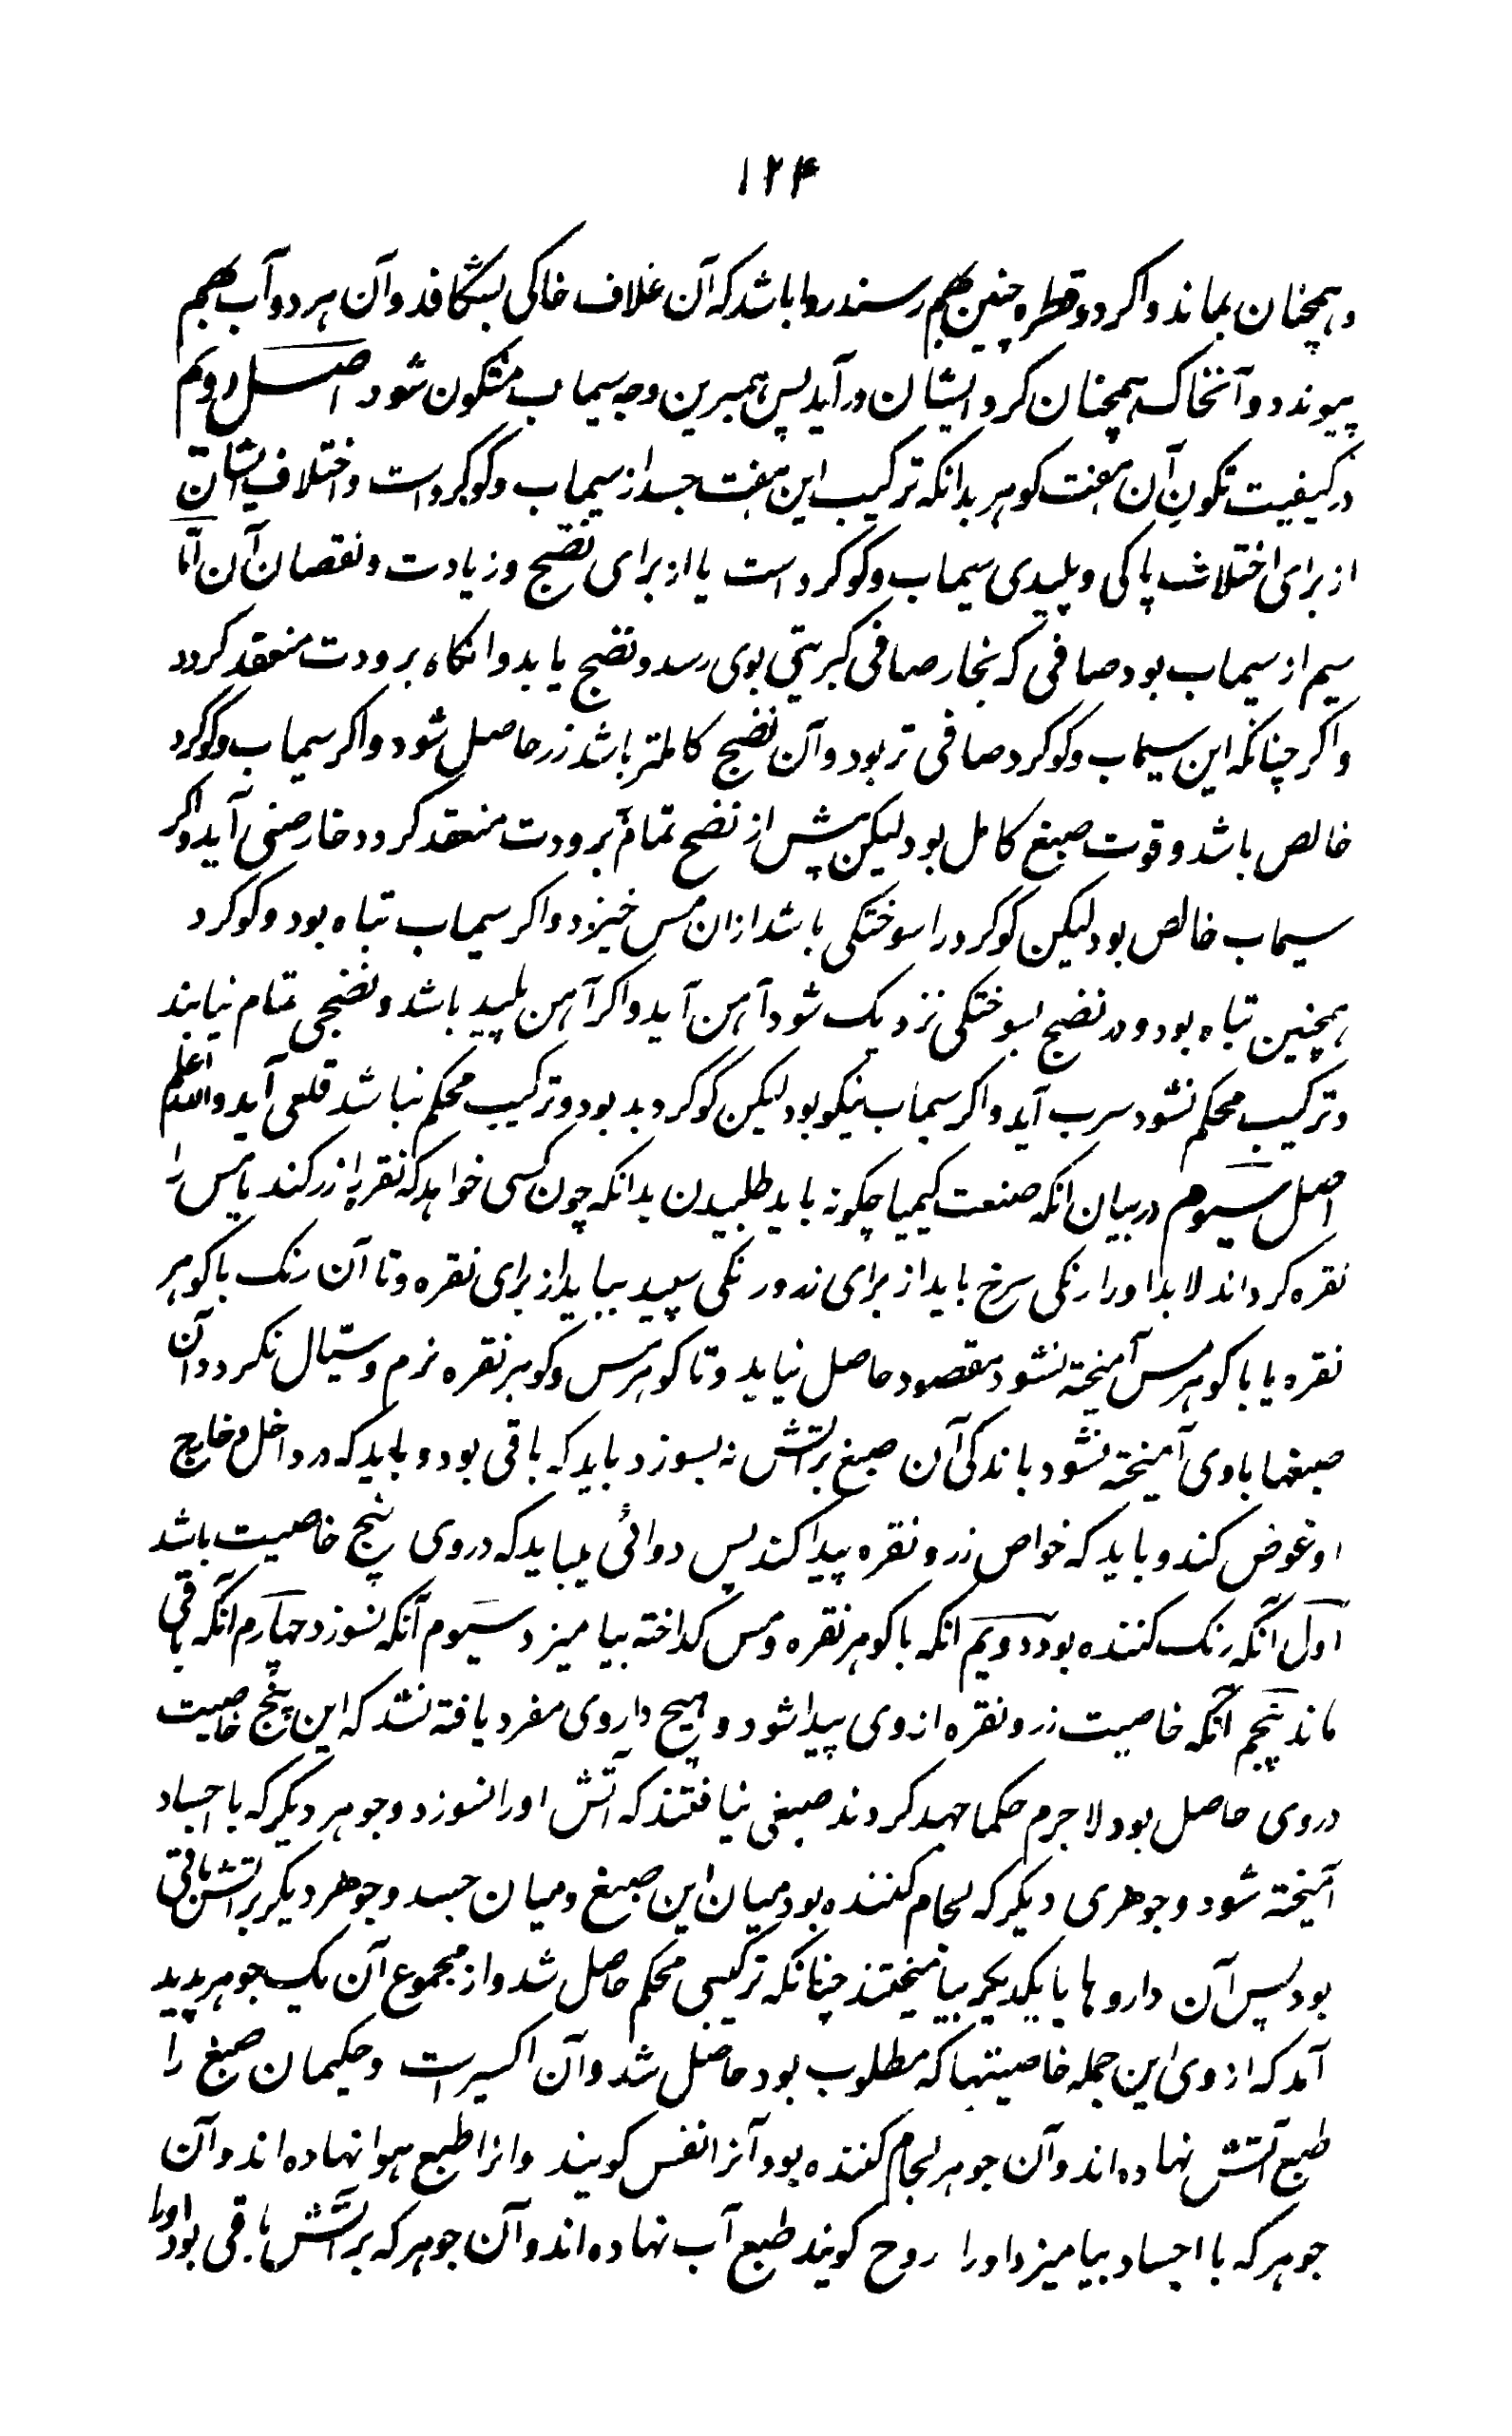 ۱۲۴
و همچنان بماند و اکر دو قطره چنین بهم رسند روا باشد که آن غلاف خاکی بشکافد و آن هر دو آب بهم
پیوندد و آنخاک همچنان کرد ایشان در آید پس همبرین وجه سیماب متکون شود اصل دویم
در کیفیت تکون آن هفت کوهر بدانکه ترکیب این هفت جسد از سیماب و کوکرد است و اختلاف ایشان
از برای اختلاف پاکی و پلیدی سیماب و کوکرد است یا از برای نضج و زیادت و نقصان آن اما
سیم از سیماب بود صافی که بخار صافی کبریتی بوی رسد و نضج یابد وانکاه برودت منعقد کردد
و اکر چنانکه این سیماب و کوکرد صافی تر بود و آن نضج کاملتر باشد زر حاصل شود و اکر سیماب و کوکرد
خالص باشد و قوت صبغ کامل بود لیکن پیش از نضج تمام برودت منعقد کردد خارصنی آید و اکر
سیماب خالص بود لیکن کوکرد را سوختکی باشد ازان مس خیزد و اکر سیماب تباه بود و کوکرد
همچنین تباه بود و در نضج بسوختکی نزدیک شود آهن آید و اکر آهن پلید باشد و نضجی تمام نیابند
و ترکیب محکم نشود سرب آید و اکر سیماب نیکو بود لیکن کوکرد بد بود و ترکیب محکم نباشد قلعی آید والله اعلم
اصل سیوم در بیان انکه صنعت کیمیا چکونه باید طلبیدن بدانکه چون کسی خواهد که نقره را زر کند یا مس را
نقره کرداند لابد او را رنکی سرخ باید از برای زر و رنکی سپید بباید از برای نقره و تا آن رنک با کوهر
نقره یا با کوهر مس آمیخته نشود مقصود حاصل نیاید و تا کوهر مس و کوهر نقره نرم و سیّال نکردد آن
صبغها باوی آمیخته نشود باندکی آن صبغ بر آتش نه بسوزد باید که باقی بود و باید که در داخل و خارج
او غوض کند و باید که خواص زر و نقره پیدا کند پس دوائی بباید که در وی پنج خاصیت باشد
اول آنکه رنک کننده بود دویم انکه با کوهر نقره و مس کداخته بیامیزد سیوم آنکه نسوزد چهارم انکه باقی
ماند پنجم آنکه خاصیت زر و نقره از وی پیدا شود و هیچ داروی مفرد یافته نشد که این پنج خاصیت
در وی حاصل بود لاجرم حکما جهد کردند صبغی نیافتند که آتش او را نسوزد و جوهر دیکر که با اجساد
آمیخته شود و جوهری دیکر که لجام کننده بود میان این صبغ و میان جسد و جوهر دیکر بر آتش باقی
بود پس آن داروها با یکدیکر بیامیختند چنانکه ترکیبی محکم حاصل شد و از مجموع آن یک جوهر پدید
آمد که از وی این جمله خاصیتها که مطلوب بود حاصل شد و آن اکسیر است و حکیمان صبغ را
طبع آتش نهاده اند و آن جوهر لجام کننده بود آنرا نفس کویند و انرا طبع هوا نهاده اند و آن
جوهر که با اجساد بیامیزد او را روح کویند طبع آب نهاده اند و آن جوهر که بر آتش باقی بود او را